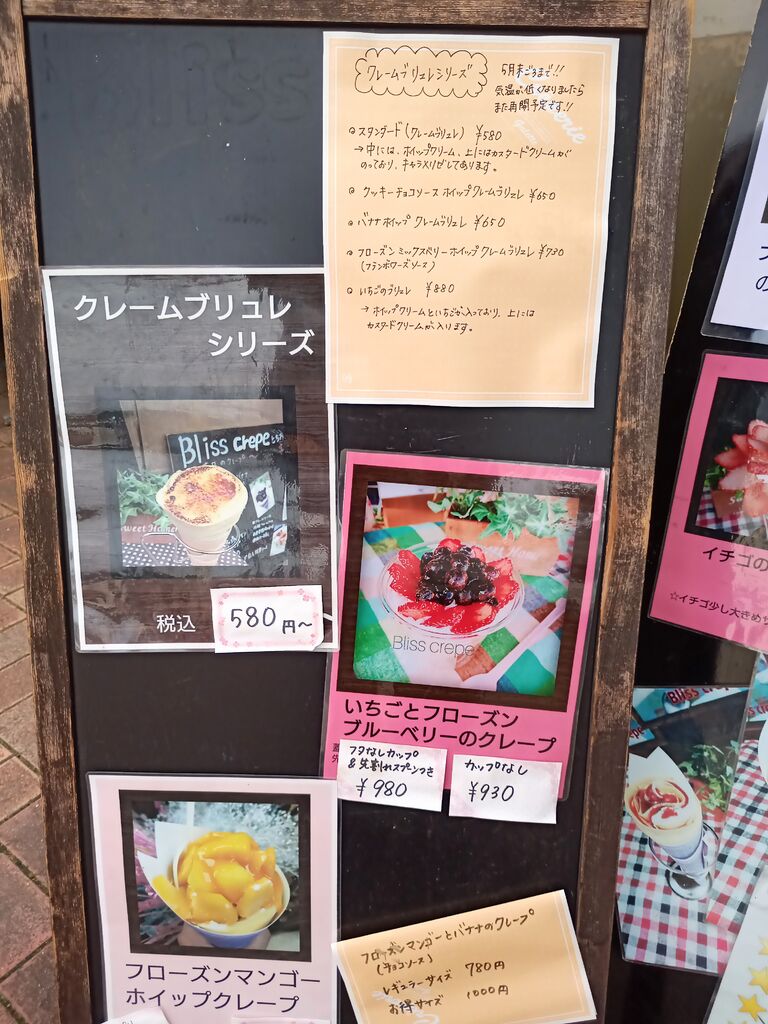 クレームブリュレシリーズ
5月末ごろまで!!
気温が低くなりましたら
また再開予定です!!
スタンダード(クレームブリュレ) ¥580
→中には、ホイップクリーム、上にはカスタードクリームが
のっており、キャラメリゼしてあります。
クッキーチョコソース ホイップクレームブリュレ ¥650
バナナホイップ クレームブリュレ ¥650
フローズンミックスベリーホイップクレームブリュレ ¥730
(フランボワーズソース)
いちごのブリュレ ¥880
→ホイップクリームといちごが入っており、上には
カスタードクリームが入ります。
クレームブリュレ
シリーズ
Bliss crepe
sweet Home
税込
580円~
Bliss crepe
いちごとフローズン
ブルーベリーのクレープ
フタなしカップ
&先割れスプーンつき
¥980
カップなし
¥930
フローズンマンゴー
ホイップクレープ
フローズンマンゴーとバナナのクレープ
(チョコソース)
レギュラーサイズ 780円
お得サイズ 1000円
イチゴの
☆イチゴ少し大きめサ
Bliss crepe